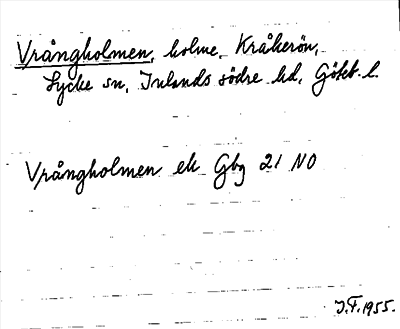 Vrångholmen, holme, Kråkerön,
Lycke sn, Inlands södre hd, Göteb. l.
Vrångholmen ek Gbg 21 NO
J.F. 1955.